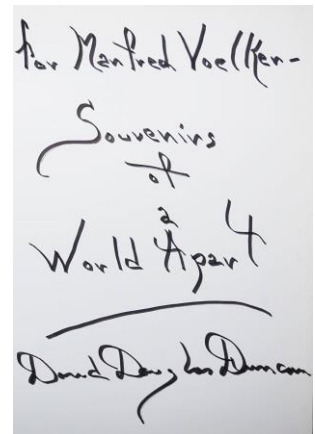 for Manfred Voelker-
Souvenirs
of
a
World Apart
David Douglas Duncan